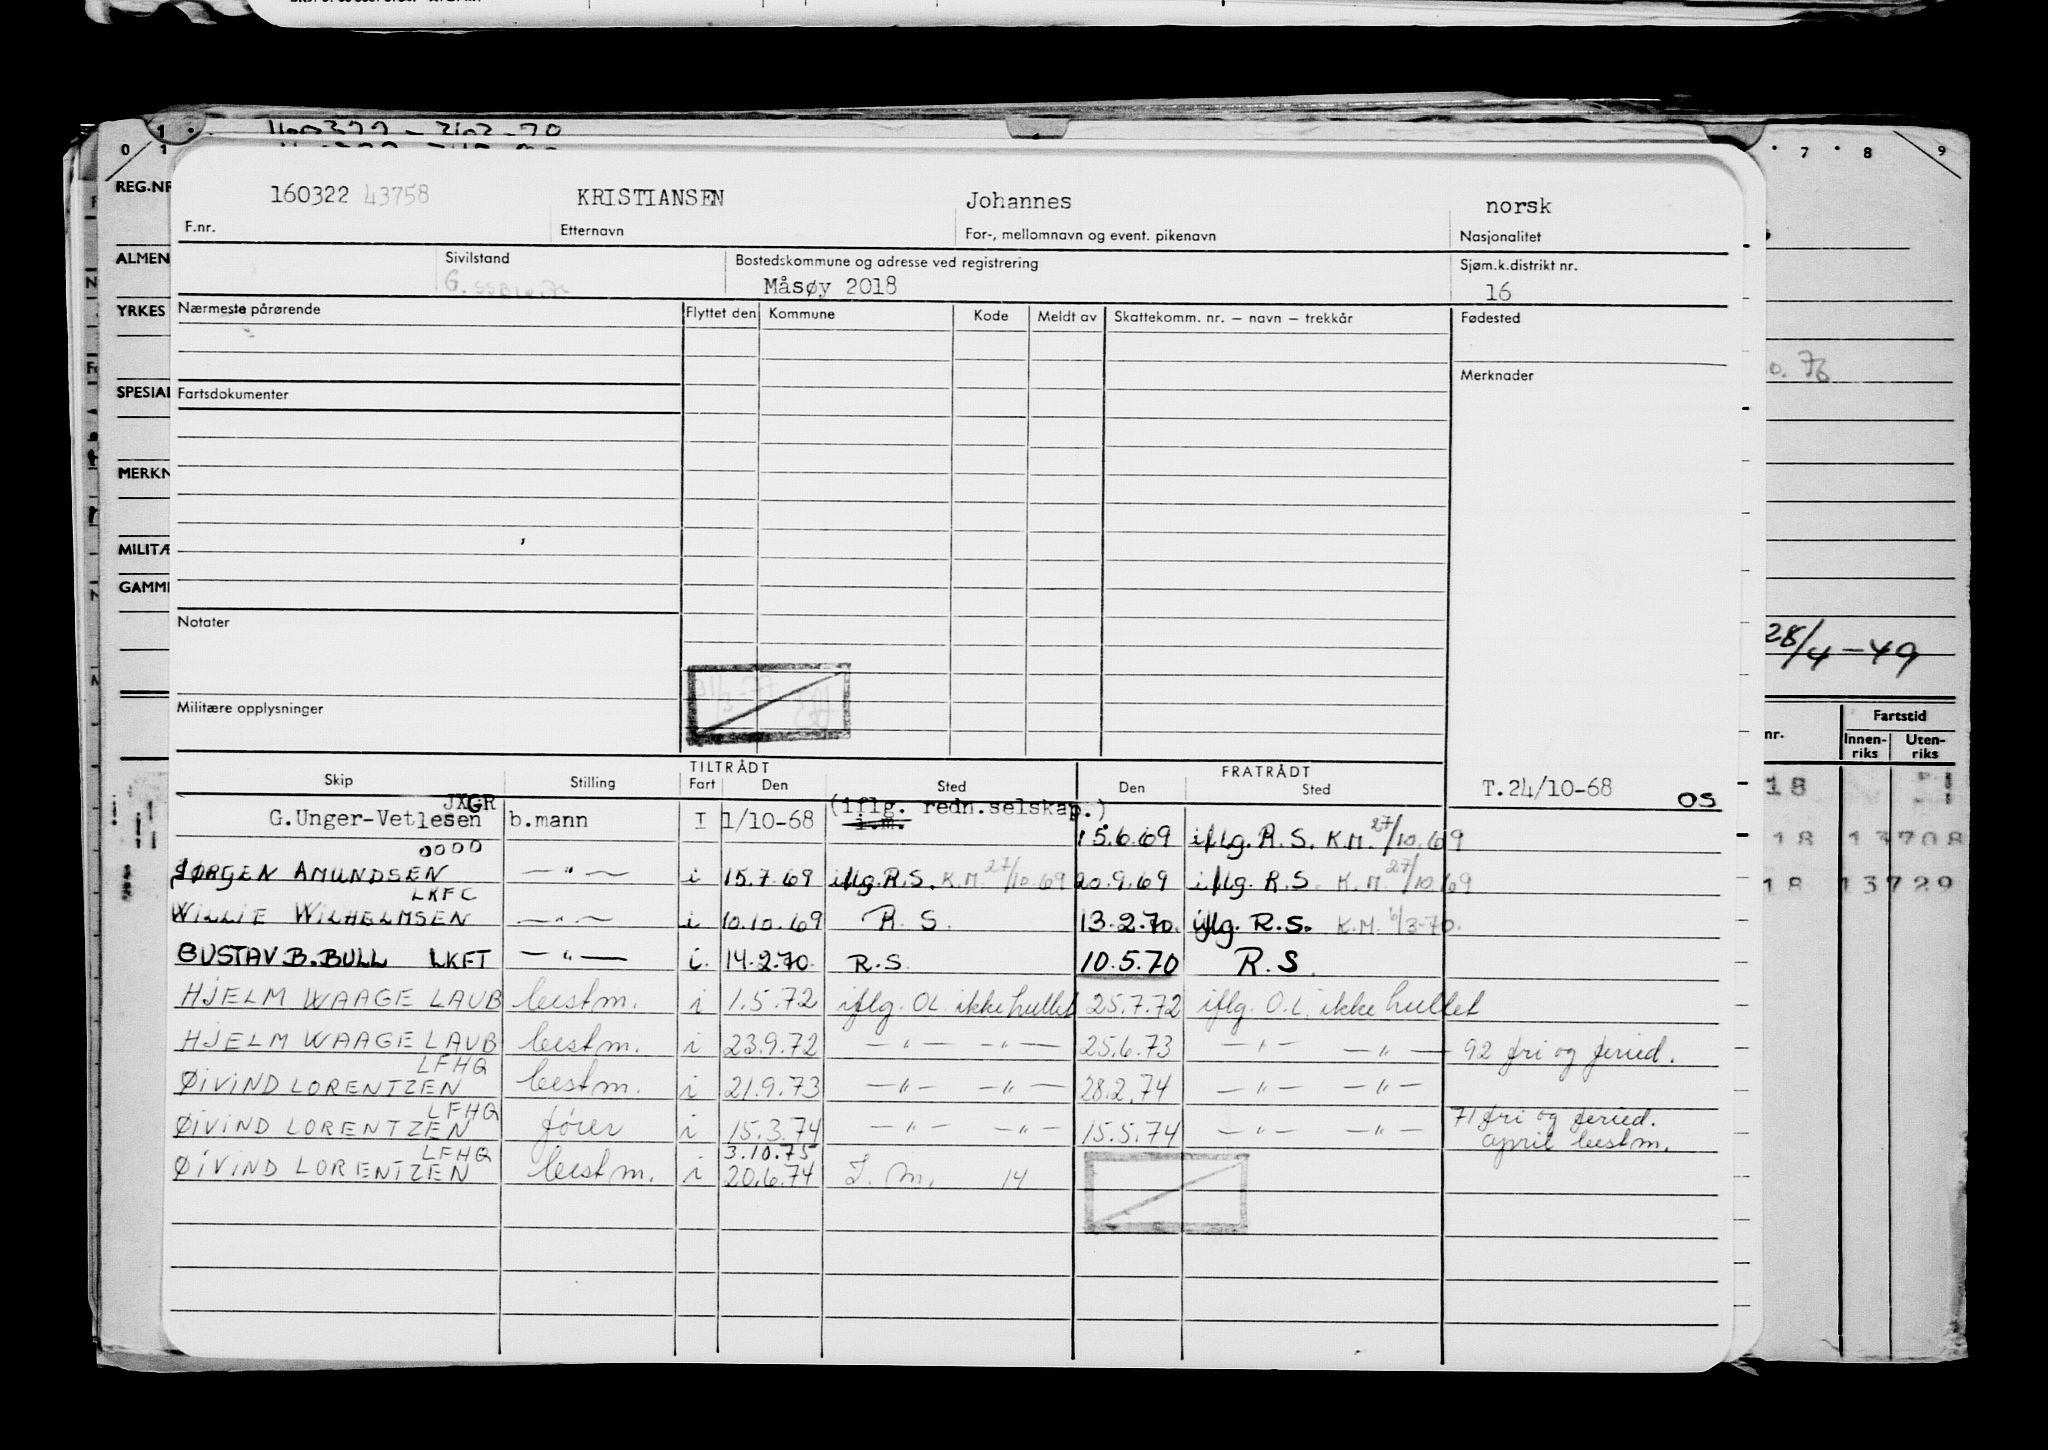 0 1
7 8 9
REG.NR
160322 43758 KRISTIANSEN Johannes norsk
F.nr. Etternavn For-, mellomnavn og event. pikenavn Nasjonalitet
ALMEN
Sivilstand Bostedskommune og adresse ved registrering Sjøm.k.distrikt nr.
G. Måsøy 2018 16
YRKES
Nærmeste pårørende Flyttet den Kommune Kode Meldt av Skattekomm. nr. — navn — trekkår Fødested
76
Merknader
SPESIAL
Fartsdokumenter
MERKN
MILITÆ
GAMM
Notater
28/4 - 49
Militære opplysninger
nr. Fartstid
Innen-riks Uten-riks
TILTRÅDT FRATRÅDT
Skip Stilling Fart Den Sted Den Sted
T. 24/10-68 OS
18
JXGR (iflg. redn.selskap.)
G.Unger-Vetlesen b.mann I 1/10-68 i.m. 15.6.69 iflg. R.S. K.M. 27/10.69
18 13708
0000
JØRGEN AMUNDSEN — " — i 15.7.69 iflg. R.S. K.M. 27/10.69 20.9.69 iflg. R.S. K.M. 27/10.69
18 13729
LKFC
WILLIE WILHELMSEN — " — i 10.10.69 R.S. 13.2.70. iflg. R.S. K.M. /3-70.
GUSTAV B. BULL LKFT — " — i. 14.2.70. R.S. 10.5.70 R.S.
HJELM WAAGE LAUB bestm. i 1.5.72 iflg. OL ikke hullet 25.7.72 iflg. O.L. ikke hullet
HJELM WAAGE LAUB bestm. i 23.9.72 — " — — " — 25.6.73 — " — — " — 92 fri og feried.
LFHQ
ØIVIND LORENTZEN bestm. i 21.9.73 — " — — " — 28.2.74 — " — — " —
LFHQ
ØIVIND LORENTZEN fører i 15.3.74 — " — — " — 15.5.74 — " — — " — 71 fri og feried.
april bestm.
LFHQ 3.10.75
ØIVIND LORENTZEN bestm. i 20.6.74 I. m. 14